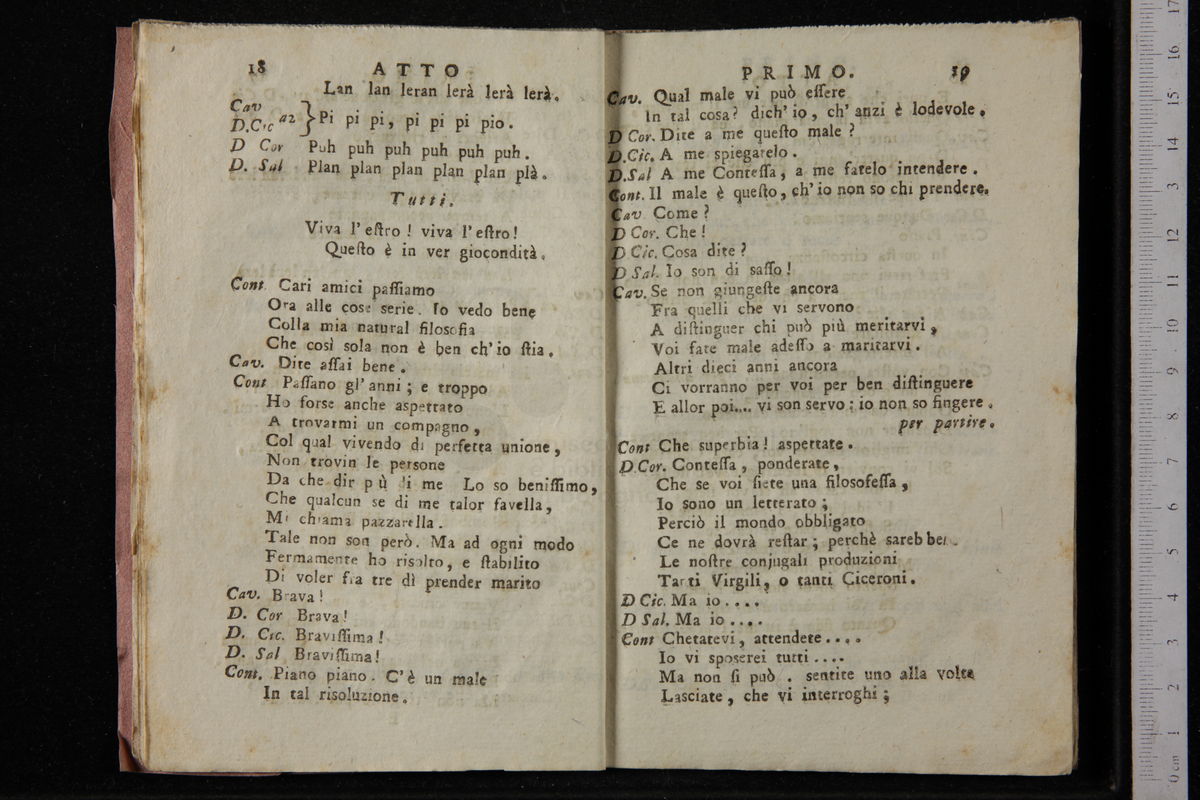 18 ATTO
Lan lan leran lerà lerà lerà.
Cav
D.Cic a2 } Pi pi pi, pi pi pi pio.
D Cor Puh puh puh puh puh puh.
D. Sal Plan plan plan plan plan plà.
Tutti.
Viva l'eſtro! viva l'eſtro!
Queſto è in ver giocondità.
Cont Cari amici paſſiamo
Ora alle cose serie. Io vedo bene
Colla mia natural filosofia
Che così sola non è ben ch'io ſtia.
Cav. Dite aſſai bene.
Cont Paſſano gl'anni; e troppo
Ho forse anche aspettato
A trovarmi un compagno,
Col qual vivendo di perfetta unione,
Non trovin le persone
Da che dir più di me Lo so beniſſimo,
Che qualcun se di me talor favella,
Mi chiama pazzarella.
Tale non son però. Ma ad ogni modo
Fermamente ho risolto, e ſtabilito
Di voler fra tre dì prender marito
Cav. Brava!
D. Cor Brava!
D. Cic. Braviſſima!
D. Sal Braviſſima!
Cont. Piano piano. C'è un male
In tal risoluzione.
PRIMO. 19
Cav. Qual male vi può eſſere
In tal cosa? dich'io, ch'anzi è lodevole.
D Cor. Dite a me queſto male?
D.Cic. A me spiegatelo.
D.Sal A me Conteſſa, a me fatelo intendere.
Cont. Il male è queſto, ch'io non so chi prendere.
Cav Come?
D Cor. Che!
D Cic. Cosa dite?
D Sal. Io son di saſſo!
Cav. Se non giungeſte ancora
Fra quelli che vi servono
A diſtinguer chi può più meritarvi,
Voi fate male adeſſo a maritarvi.
Altri dieci anni ancora
Ci vorranno per voi per ben diſtinguere
E allor poi.... vi son servo: io non so fingere.
per partire.
Cont Che superbia! aspettate.
D.Cor. Conteſſa, ponderate,
Che se voi ſiete una filosofeſſa,
Io sono un letterato;
Perciò il mondo obbligato
Ce ne dovrà reſtar; perchè sarebber
Le noſtre conjugali produzioni
Tanti Virgili, o tanti Ciceroni.
D Cic. Ma io....
D Sal. Ma io....
Cont Chetatevi, attendete....
Io vi sposerei tutti....
Ma non ſi può. sentite uno alla volta
Lasciate, che vi interroghi;